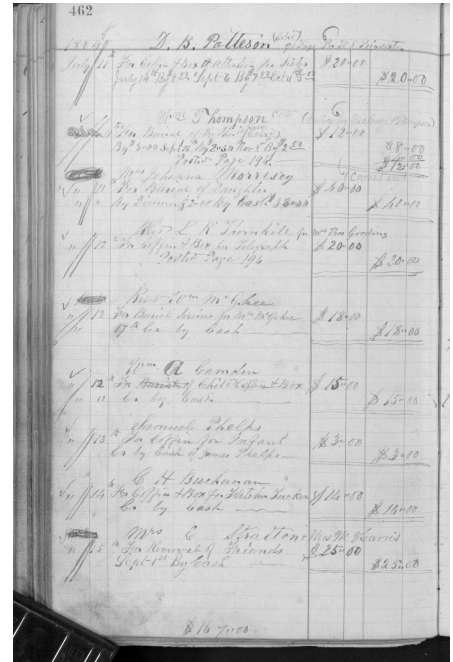 462
D. B. Patteson
July 11 For Coffin & Box & Attention for Sister $20-00
July 14th By $ Sept 6 By $
$20-00
Wm Thompson
For Burial of $12-00
By $ 5-00 Sept 15 By 2-50 Nov 5 By 2 50 $8-00
Posted Page 198 $12-00
Mrs Johana Morrisey
" 11 For Burial of Daughter $40-00
" " By Discount $2-00 By Cash $38-00 $40-00
Rev L R Thornhill for Mrs Thos Gooding
" 12 For Coffin & Box for Telegraph $20-00
Posted Page 194 $20-00
Revd Wm McGhee
" 12 For Burial Services for Mrs McGhee $18-00
" 17th Cr by Cash $18-00
Wm A Camden
" 12 For of Child Coffin & Box $15-00
" " Cr by Cash $15-00
Samuel Phelps
" 13 For Coffin for Infant $3-00
Cr by Cash of James Phelps $3-00
C H Buchanan
" 14 For Coffin & Box for Tucker $14-00
Cr by Cash $14-00
Mrs C Stratton & Mrs M Harris
" 15 For Removal of Friends $25-00
Sept 1st By Cash $25-00
$167-00